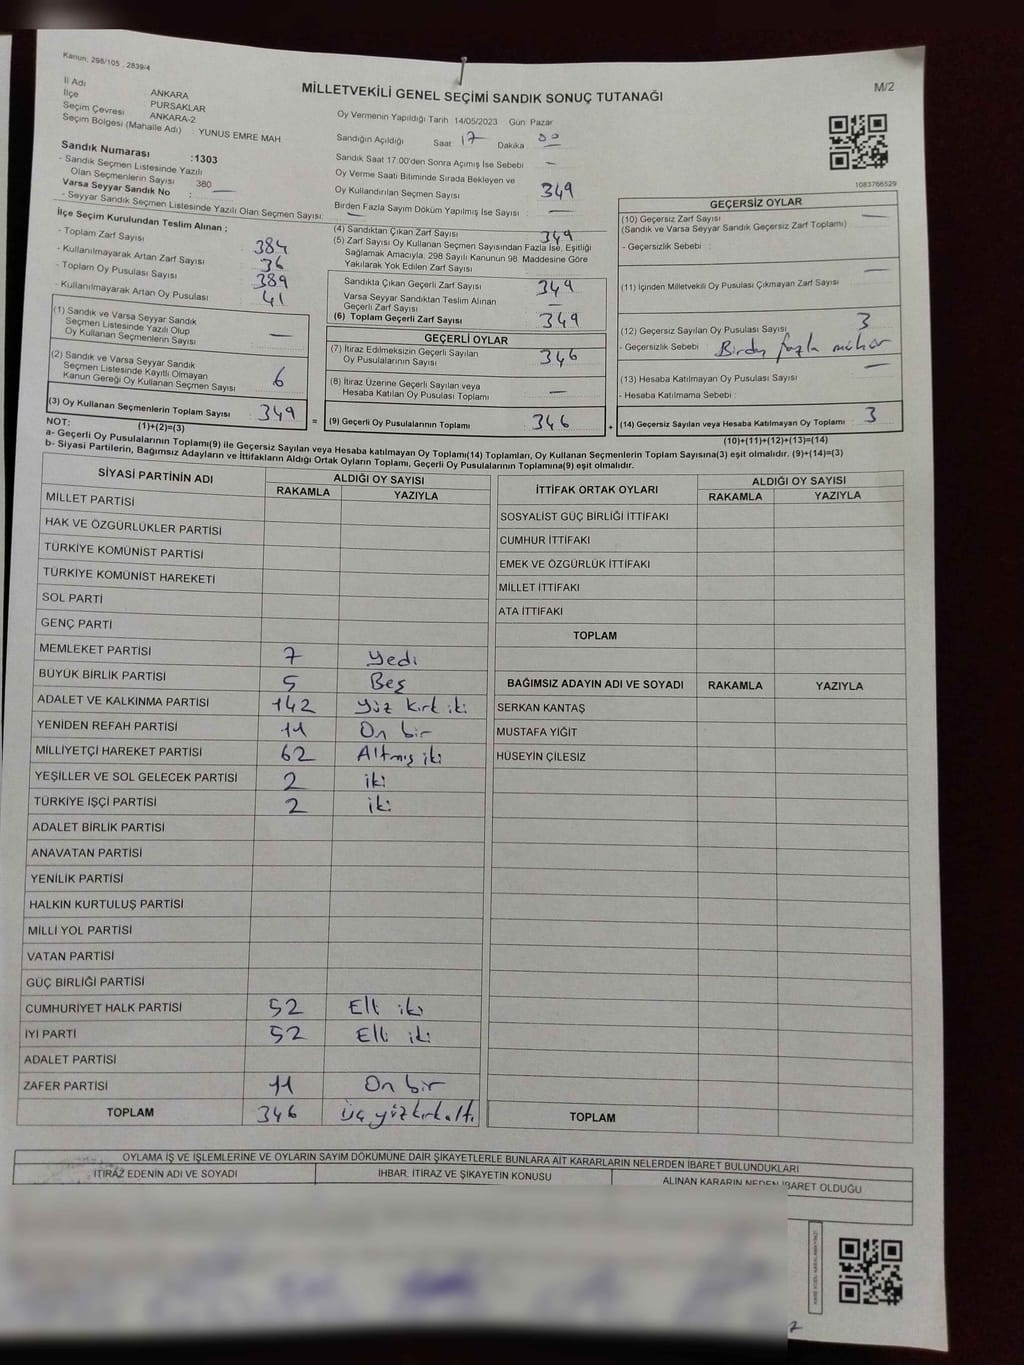 Kanun: 298/105 , 2839/4
M/2
MİLLETVEKİLİ GENEL SEÇİMİ SANDIK SONUÇ TUTANAĞI
İl Adı ANKARA
İlçe PURSAKLAR
Seçim Çevresi ANKARA-2
Seçim Bölgesi (Mahalle Adı) : YUNUS EMRE MAH
Sandık Numarası :1303
- Sandık Seçmen Listesinde Yazılı
Olan Seçmenlerin Sayısı 380
Varsa Seyyar Sandık No : —
- Seyyar Sandık Seçmen Listesinde Yazılı Olan Seçmen Sayısı: —
Oy Vermenin Yapıldığı Tarih 14/05/2023 Gün Pazar
Sandığın Açıldığı Saat 17 Dakika 00
Sandık Saat 17:00'den Sonra Açımış İse Sebebi —
Oy Verme Saati Bitiminde Sırada Bekleyen ve
Oy Kullandırılan Seçmen Sayısı 349
Birden Fazla Sayım Döküm Yapılmış İse Sayısı —
1083766529
İlçe Seçim Kurulundan Teslim Alınan :
- Toplam Zarf Sayısı 384
- Kullanılmayarak Artan Zarf Sayısı 36
- Toplam Oy Pusulası Sayısı 389
- Kullanılmayarak Artan Oy Pusulası 41
(1) Sandık ve Varsa Seyyar Sandık
Seçmen Listesinde Yazılı Olup
Oy Kullanan Seçmenlerin Sayısı —
(2) Sandık ve Varsa Seyyar Sandık
Seçmen Listesinde Kayıtlı Olmayan
Kanun Gereği Oy Kullanan Seçmen Sayısı 6
(3) Oy Kullanan Seçmenlerin Toplam Sayısı 349
(1)+(2)=(3)
(4) Sandıktan Çıkan Zarf Sayısı 349
(5) Zarf Sayısı Oy Kullanan Seçmen Sayısından Fazla İse, Eşitliği
Sağlamak Amacıyla, 298 Sayılı Kanunun 98. Maddesine Göre
Yakılarak Yok Edilen Zarf Sayısı
Sandıkta Çıkan Geçerli Zarf Sayısı 349
Varsa Seyyar Sandıktan Teslim Alınan
Geçerli Zarf Sayısı —
(6) Toplam Geçerli Zarf Sayısı 349
GEÇERLİ OYLAR
(7) İtiraz Edilmeksizin Geçerli Sayılan
Oy Pusulalarının Sayısı 346
(8) İtiraz Üzerine Geçerli Sayılan veya
Hesaba Katılan Oy Pusulası Toplamı —
= (9) Geçerli Oy Pusulalarının Toplamı 346
GEÇERSİZ OYLAR
(10) Geçersiz Zarf Sayısı —
(Sandık ve Varsa Seyyar Sandık Geçersiz Zarf Toplamı)
- Geçersizlik Sebebi :
(11) İçinden Milletvekili Oy Pusulası Çıkmayan Zarf Sayısı —
(12) Geçersiz Sayılan Oy Pusulası Sayısı 3
- Geçersizlik Sebebi : Birden fazla mühür
(13) Hesaba Katılmayan Oy Pusulası Sayısı —
- Hesaba Katılmama Sebebi :
+ (14) Geçersiz Sayılan veya Hesaba Katılmayan Oy Toplamı 3
(10)+(11)+(12)+(13)=(14)
NOT:
a- Geçerli Oy Pusulalarının Toplamı(9) ile Geçersiz Sayılan veya Hesaba katılmayan Oy Toplamı(14) Toplamları, Oy Kullanan Seçmenlerin Toplam Sayısına(3) eşit olmalıdır. (9)+(14)=(3)
b- Siyasi Partilerin, Bağımsız Adayların ve İttifakların Aldığı Ortak Oyların Toplamı, Geçerli Oy Pusulalarının Toplamına(9) eşit olmalıdır.
SİYASİ PARTİNİN ADI ALDIĞI OY SAYISI
RAKAMLA YAZIYLA
MİLLET PARTİSİ
HAK VE ÖZGÜRLÜKLER PARTİSİ
TÜRKİYE KOMÜNİST PARTİSİ
TÜRKİYE KOMÜNİST HAREKETİ
SOL PARTİ
GENÇ PARTİ
MEMLEKET PARTİSİ 7 Yedi
BÜYÜK BİRLİK PARTİSİ 5 Beş
ADALET VE KALKINMA PARTİSİ 142 Yüz kırk iki
YENİDEN REFAH PARTİSİ 11 On bir
MİLLİYETÇİ HAREKET PARTİSİ 62 Altmış iki
YEŞİLLER VE SOL GELECEK PARTİSİ 2 iki
TÜRKİYE İŞÇİ PARTİSİ 2 iki
ADALET BİRLİK PARTİSİ
ANAVATAN PARTİSİ
YENİLİK PARTİSİ
HALKIN KURTULUŞ PARTİSİ
MİLLİ YOL PARTİSİ
VATAN PARTİSİ
GÜÇ BİRLİĞİ PARTİSİ
CUMHURİYET HALK PARTİSİ 52 Elli iki
İYİ PARTİ 52 Elli iki
ADALET PARTİSİ
ZAFER PARTİSİ 11 On bir
TOPLAM 346 Üç yüz kırk altı
İTTİFAK ORTAK OYLARI ALDIĞI OY SAYISI
RAKAMLA YAZIYLA
SOSYALİST GÜÇ BİRLİĞİ İTTİFAKI
CUMHUR İTTİFAKI
EMEK VE ÖZGÜRLÜK İTTİFAKI
MİLLET İTTİFAKI
ATA İTTİFAKI
TOPLAM
BAĞIMSIZ ADAYIN ADI VE SOYADI RAKAMLA YAZIYLA
SERKAN KANTAŞ
MUSTAFA YİĞİT
HÜSEYİN ÇİLESİZ
TOPLAM
OYLAMA İŞ VE İŞLEMLERİNE VE OYLARIN SAYIM DÖKÜMÜNE DAİR ŞİKAYETLERLE BUNLARA AİT KARARLARIN NELERDEN İBARET BULUNDUKLARI
İTİRAZ EDENİN ADI VE SOYADI İHBAR, İTİRAZ VE ŞİKAYETİN KONUSU ALINAN KARARIN NEDEN İBARET OLDUĞU